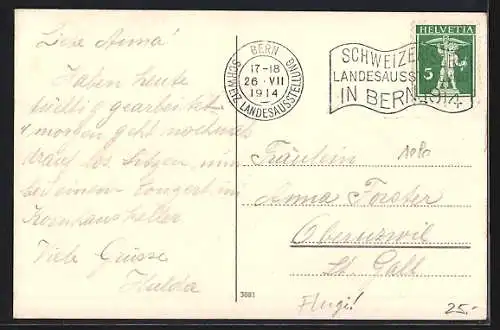 Liebe Anna!
Haben heute
tüchtig gearbeitet
morgen geht nochmals
drauf los. Sitzen nun
bei einem Conzert im
Kornhauskeller
Viele Grüsse
Hulda
BERN
17-18
26·VII
1914
SCHWEIZ. LANDESAUSSTELLUNG
SCHWEIZER
LANDESAUSS
IN BERN 1914
HELVETIA
5
Fräulein
Anna Forster
Oberuzwil
St. Gall
Flugi!
3081
25.-